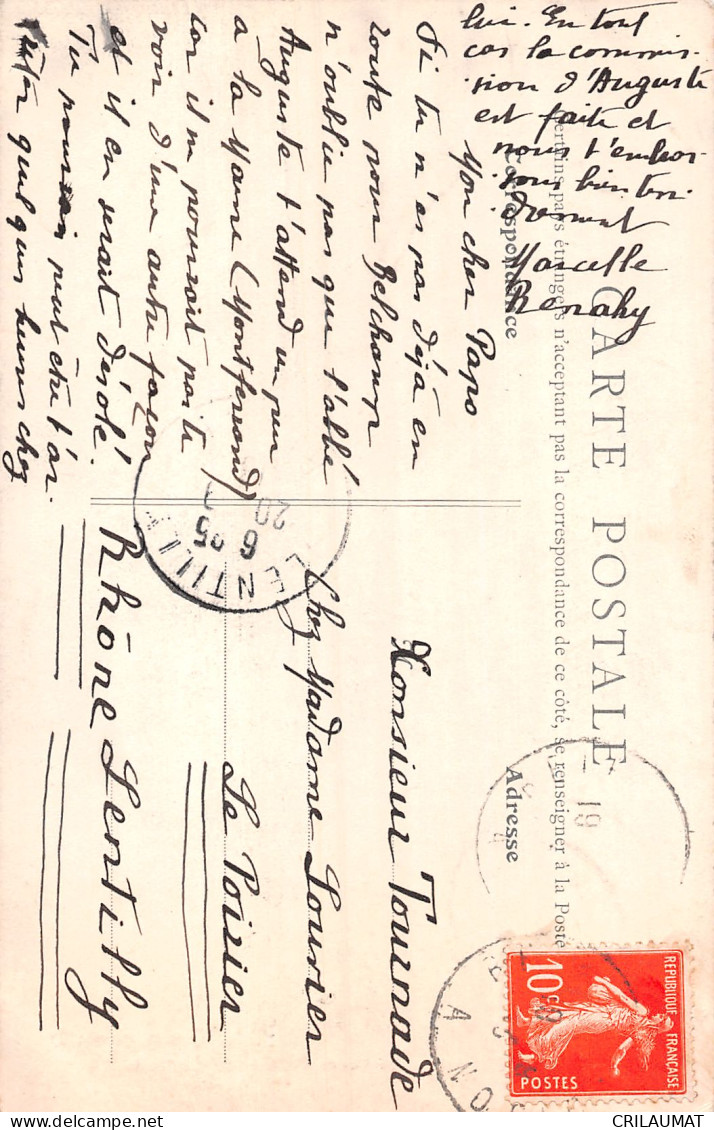 CARTE POSTALE
Certains pays étrangers n'acceptant pas la correspondance de ce côté, se renseigner à la Poste
Correspondance
Adresse
Mon cher Papo
Si tu n'es pas déjà en
route pour Belchamp
n'oublie pas que l'abbé
Auguste t'attend un peu
à la Marne (Montferrand)
car il ne pourrait parte
voir d'une autre façon
et il en serait désolé.
Tu pourrais peut être t'ar-
rêter quelques heures chez
lui. En tout
cas la commis-
sion d'Auguste
est faite et
nous t'embras-
sons bien ten-
drement
Marcelle
Renahy
Monsieur Tournade
Chez Madame Lourier
Le Poirier
Rhône Lentilly
LENTILLY
6 95
20
19
REPUBLIQUE FRANÇAISE
10 c
POSTES
CRILAUMAT